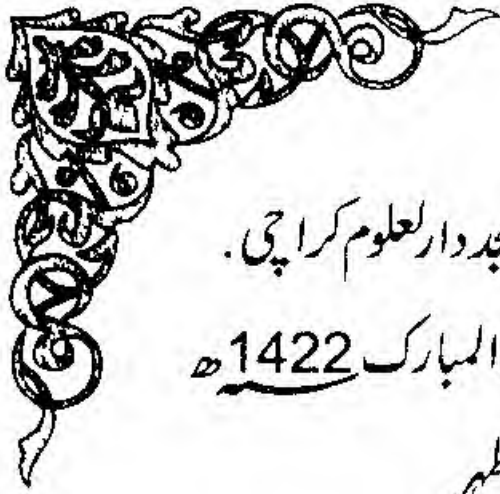 دارلعلوم کراچی.
المبارک 1422ھ
ظہر